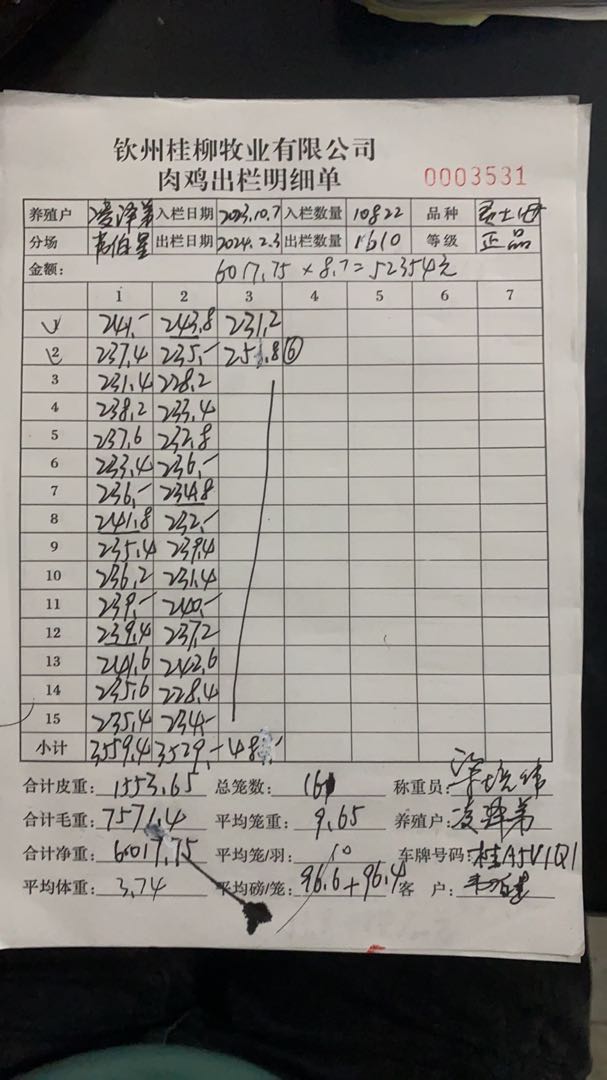 钦州桂柳牧业有限公司
肉鸡出栏明细单 0003531
养殖户 凌泽第 入栏日期 2023.10.7 入栏数量 10822 品种
分场 出栏日期 2024.2.3 出栏数量 1610 等级 正品
金额: 6017.75 × 8.7 = 52354元
1 2 3 4 5 6 7
1 241.- 243.8 231.2
2 237.4 235.- 6
3 231.4 228.2
4 238.2 233.4
5 237.6 232.8
6 233.4 236.-
7 236.- 234.8
8 241.8 232.-
9 235.4 239.4
10 236.2 231.4
11 239.- 240.-
12 239.4 237.2
13 241.6 242.6
14 235.6 228.4
15 235.4 234.-
小计 3559.4 3529.-
合计皮重: 1553.65 总笼数: 161 称重员:
合计毛重: 7571.4 平均笼重: 9.65 养殖户: 凌泽第
合计净重: 6017.75 平均笼/羽: 10 车牌号码: 桂A5V1Q1
平均体重: 3.74 平均磅/笼: 96.6+96.4 客户: